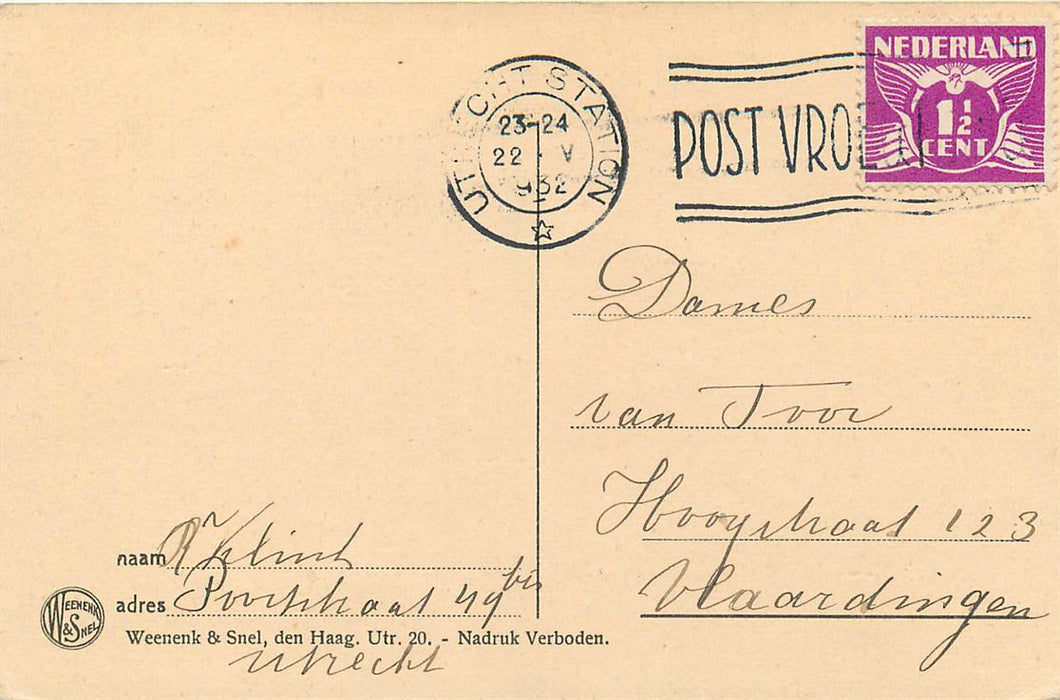 UTRECHT STATION
23-24
22 · V
1932
POST VROE
NEDERLAND
1½
CENT
Dames
van Toor
Hoogstraat 123
Vlaardingen
naam R Klint
adres Poortstraat 49 bis
Utrecht
WEENENK & SNEL
Weenenk & Snel, den Haag. Utr. 20. - Nadruk Verboden.